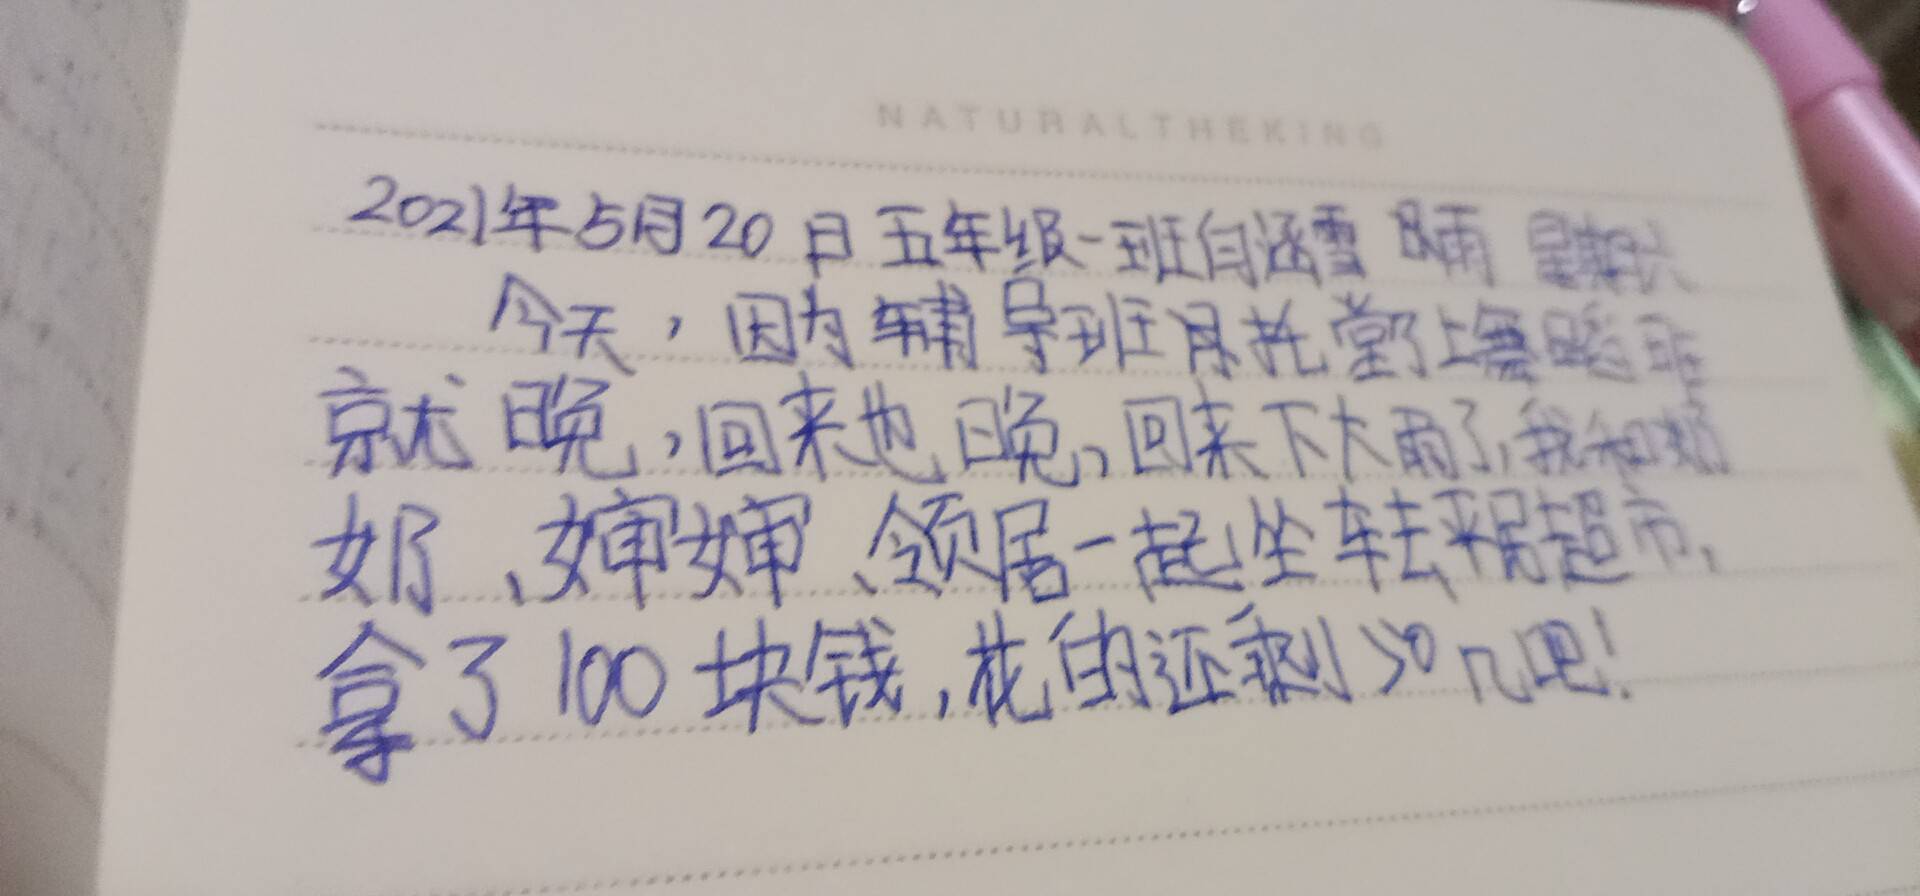 NATURALTHEKING
2021年5月20日五年级一班白涵雪 雨 星期六
今天，因为辅导班 上舞蹈班
就晚，回来也晚，回来下大雨了，我和奶
奶、婶婶、领居一起坐车去平居超市，
拿了100块钱，花的还剩30几吧！